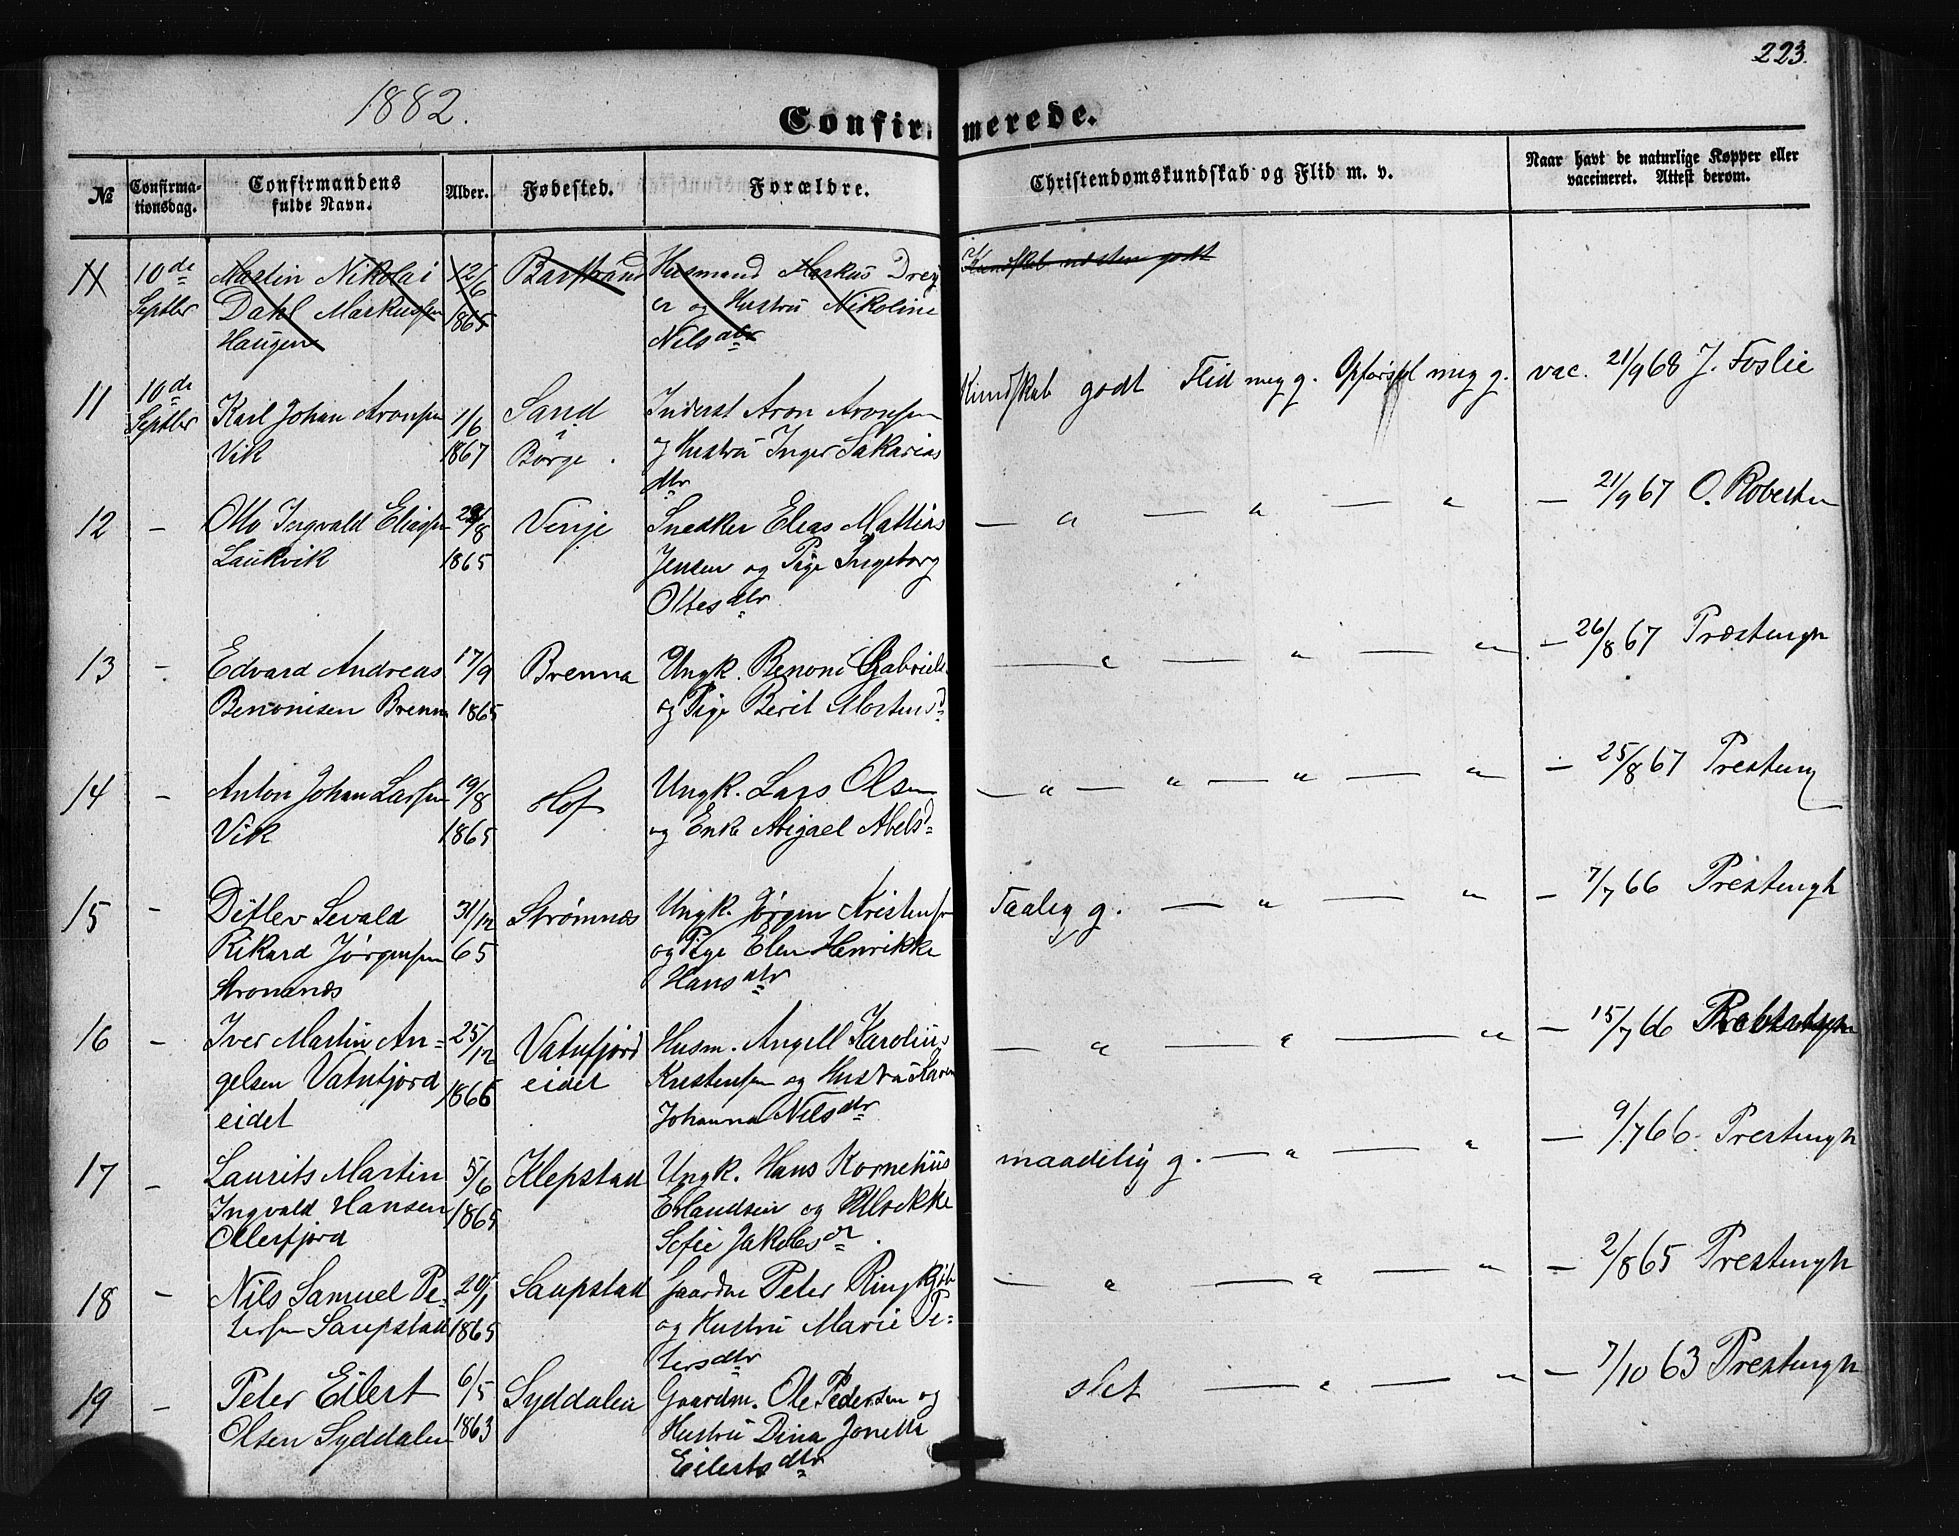 223.
1882.
Confirmerede.
№
Confirma-
tionsdag.
Confirmandens
fulde Navn.
Alder.
Fødested.
Forældre.
Christendomskundskab og Flid m. v.
Naar havt de naturlige Kopper eller
vaccineret. Attest derom.
11 10de Martin Nikolai 12/6 Barstrand Husmand Markus Drey Kundskab næsten godt
Septbr Dahl Markussen 1865 er og Hustru Nikoline
Haugen Nilsdtr
11 10de Kundskab godt Flid meg g. Opførsel meg g. vac. 21/9 68 J. Foslie
Septbr Karl Johan Aronsen 1/6 Sand Inderst Aron Aronsen
Vik 1867 i Børge. og Hustru Inger Sakarias
dtr
12 – Otto Ingvald Eliassen /8 Snedker Elias Mattias — " — " — " — 21/9 67 O. Robertsen
Laukvik 1865 Jensen og Pige Ingeborg
Ottesdtr
13 – Edvard Andreas 17/9 Brenna Ungk. Benoni Gabriels — " — " — " — 26/8 67 Præstengh
Benonisen Brenna 1865 og Pige Berit Mortensd
14 – Anton Johan Larsen 19/8 Hof Ungk. Lars Olsen — " — " — " — " — 25/8 67 Presteng
Vik 1865 og Enke Abigael Abelsd
15 – Ditlev Sevald 31/12 Strømnæs Ungk. Jørgen Kristensen Taalig g. — " — " — 7/7 66 Prestengh
Rikard Jørgensen 65 og Pige Elen Henrikke
Strømnæs Hansdtr
16 – Iver Martin An= 25/12 Vatnfjord Husm. Angell Karolius — " — " — " — 15/7 66
gelsen Vatnfjord 1865 eidet Kristensen og Hustru Karen
eidet Johanna Nilsdtr
17 – Laurits Martin 5/6 Klepstad Ungk. Hans Kornelius maadelig g. — " — " — 9/7 66 Prestengh
Ingvald Hansen 1865 Erlandsen og Ulrikke
Olderfjord Sofie Jakobsdr.
18 – Nils Samuel Pe= /1 Saupstad Gaardm Peter Ringkjøb — " — " — " — 2/8 65 Prestengh
tersen Saupstad 1865 og Hustru Marie Pe=
tersdtr
19 – Peter Eilert 6/5 Syddalen Gaardm. Ole Pedersen og slet — " — " — 7/10 63 Prestengh
Olsen Syddalen 1863 Hustru Dina Jonetta
Eilertsdtr